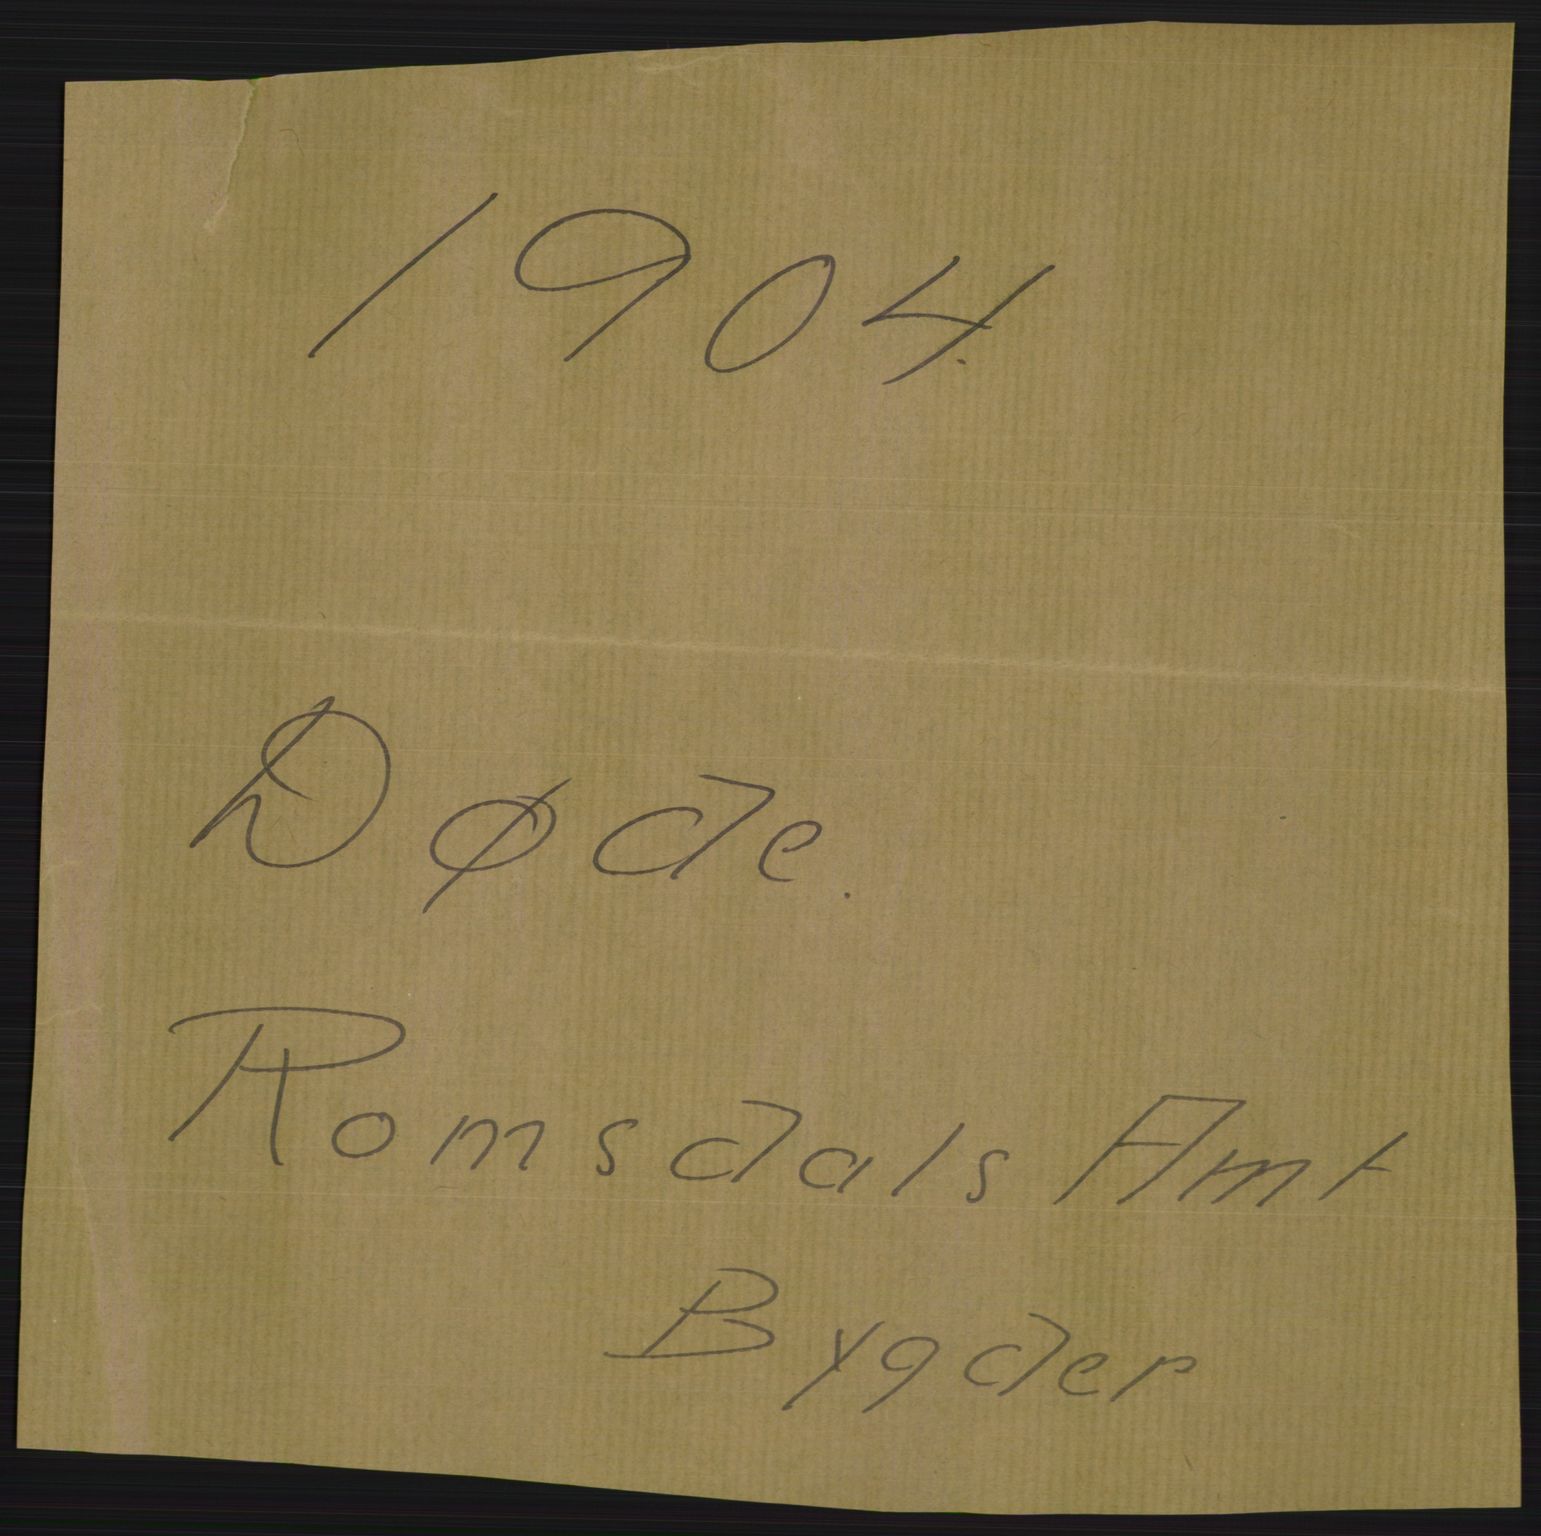 1904.
Døde.
Romsdals Amt
Bygder